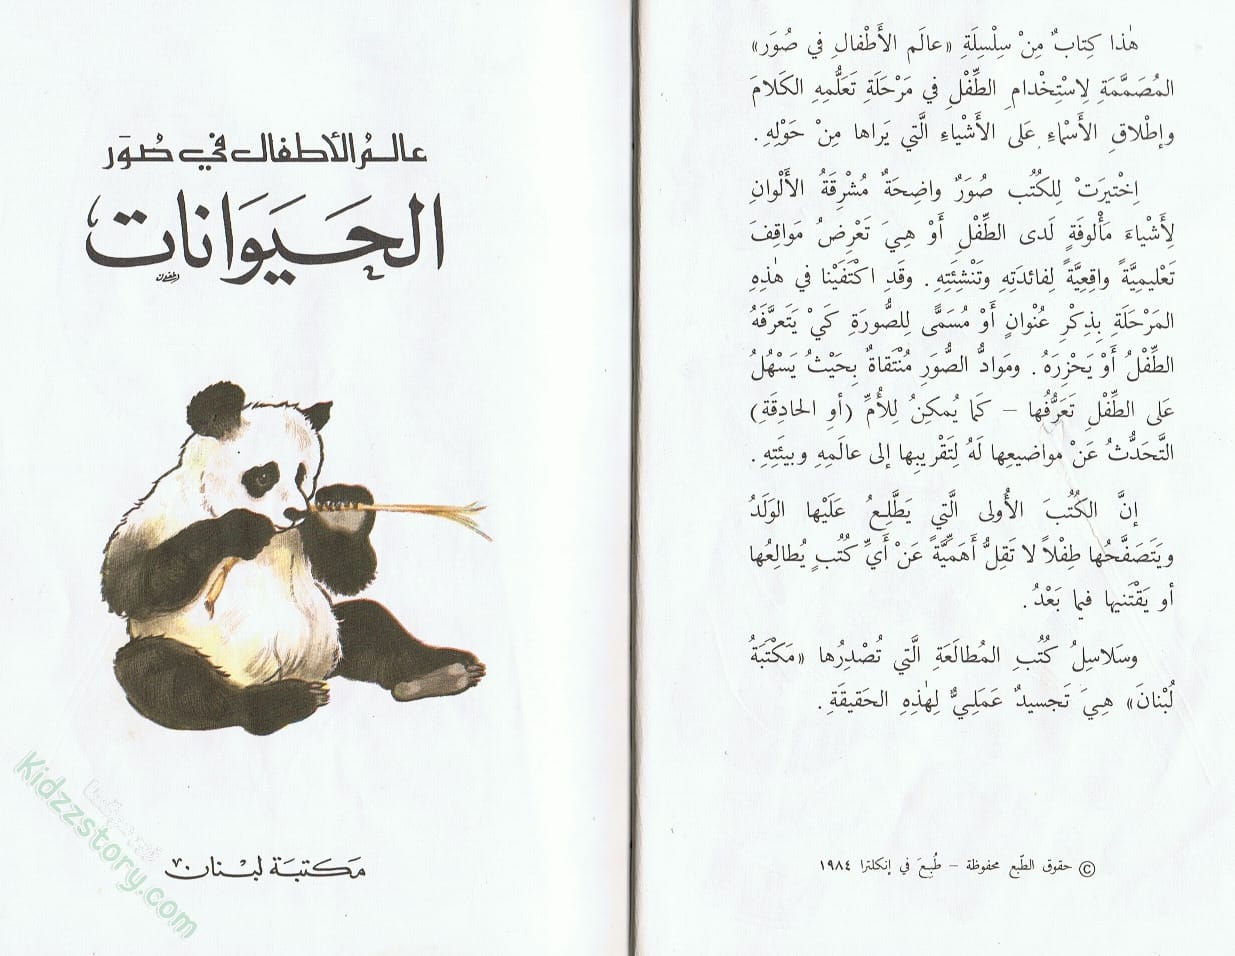 هٰذا كِتابٌ مِنْ سِلْسِلَةِ «عالَم الأَطْفالِ في صُوَر»
المُصَمَّمَةِ لِاسْتِخْدامِ الطِّفْلِ في مَرْحَلَةِ تَعَلُّمِهِ الكَلامَ
وإطْلاقِ الأَسْماءِ عَلى الأَشْياءِ الَّتي يَراها مِنْ حَوْلِهِ.
اِخْتيرَتْ لِلكُتُب صُوَرٌ واضِحَةٌ مُشْرِقَةُ الأَلْوانِ
لِأَشْياءَ مَأْلوفَةٍ لَدى الطِّفْلِ أَوْ هِيَ تَعْرِضُ مَواقِفَ
تَعْليمِيَّةً واقِعِيَّةً لِفائدَتِهِ وتَنْشِئَتِهِ. وقَدِ اكْتَفَيْنا في هٰذِهِ
المَرْحَلَةِ بِذِكْرِ عُنْوانٍ أَوْ مُسَمًّى لِلصُّورَةِ كَيْ يَتَعرَّفَهُ
الطِّفْلُ أَوْ يَحْزِرَهُ. ومَوادُّ الصُّوَرِ مُنْتَقاةٌ بِحَيْثُ يَسْهُلُ
عَلى الطِّفْلِ تَعَرُّفُها – كَما يُمكِنُ لِلأُمِّ (أوِ الحاذِقَةِ)
التَّحَدُّثُ عَنْ مواضيعِها لَهُ لِتَقْريبِها إلى عالَمِهِ وبيئَتِهِ.
إنَّ الكُتُبَ الأُولى الَّتي يَطَّلِعُ عَلَيْها الوَلَدُ
ويَتَصَفَّحُها طِفْلاً لا تَقِلُّ أَهَمِّيَّةً عَنْ أَيِّ كُتُبٍ يُطالِعُها
أو يَقْتَنيها فيما بَعْدُ.
وسَلاسِلُ كُتُبِ المُطالَعَةِ الَّتي تُصْدِرُها «مَكْتَبَةُ
لُبْنانَ» هِيَ تَجسيدٌ عَمَلِيٌّ لِهٰذِهِ الحَقيقَةِ.
© حقوق الطّبع محفوظة – طُبِعَ في إنكلترا ١٩٨٤
عالمُ الأطفال في صُوَر
الحَيَوَانات
مَكتبَة لبْنان
Kidzzstory.com